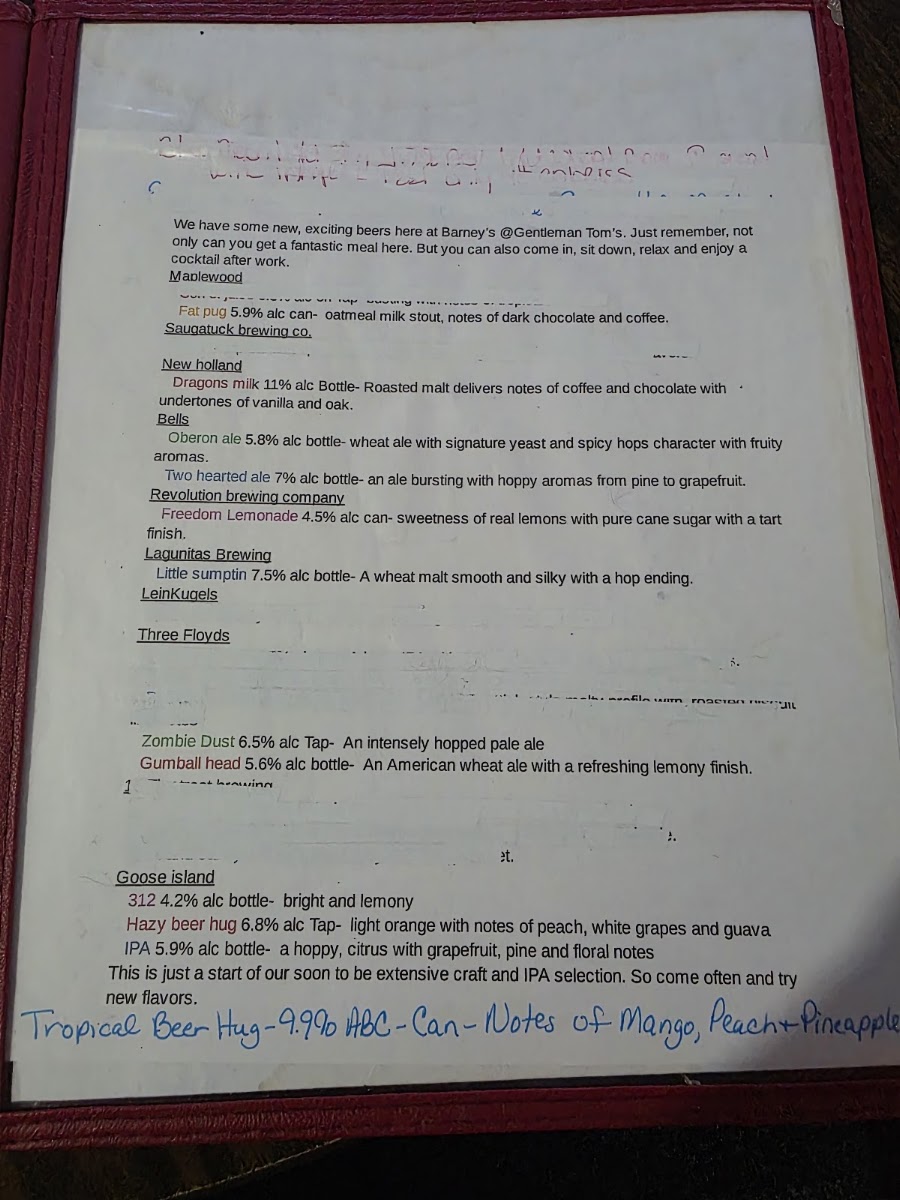 We have some new, exciting beers here at Barney's @Gentleman Tom's. Just remember, not
only can you get a fantastic meal here. But you can also come in, sit down, relax and enjoy a
cocktail after work.
Maplewood
Fat pug 5.9% alc can- oatmeal milk stout, notes of dark chocolate and coffee.
Saugatuck brewing co.
New holland
Dragons milk 11% alc Bottle- Roasted malt delivers notes of coffee and chocolate with
undertones of vanilla and oak.
Bells
Oberon ale 5.8% alc bottle- wheat ale with signature yeast and spicy hops character with fruity
aromas.
Two hearted ale 7% alc bottle- an ale bursting with hoppy aromas from pine to grapefruit.
Revolution brewing company
Freedom Lemonade 4.5% alc can- sweetness of real lemons with pure cane sugar with a tart
finish.
Lagunitas Brewing
Little sumptin 7.5% alc bottle- A wheat malt smooth and silky with a hop ending.
LeinKugels
Three Floyds
Zombie Dust 6.5% alc Tap- An intensely hopped pale ale
Gumball head 5.6% alc bottle- An American wheat ale with a refreshing lemony finish.
1
Goose island
312 4.2% alc bottle- bright and lemony
Hazy beer hug 6.8% alc Tap- light orange with notes of peach, white grapes and guava
IPA 5.9% alc bottle- a hoppy, citrus with grapefruit, pine and floral notes
This is just a start of our soon to be extensive craft and IPA selection. So come often and try
new flavors.
Tropical Beer Hug-9.9% ABC-Can-Notes of Mango, Peach+Pineapple